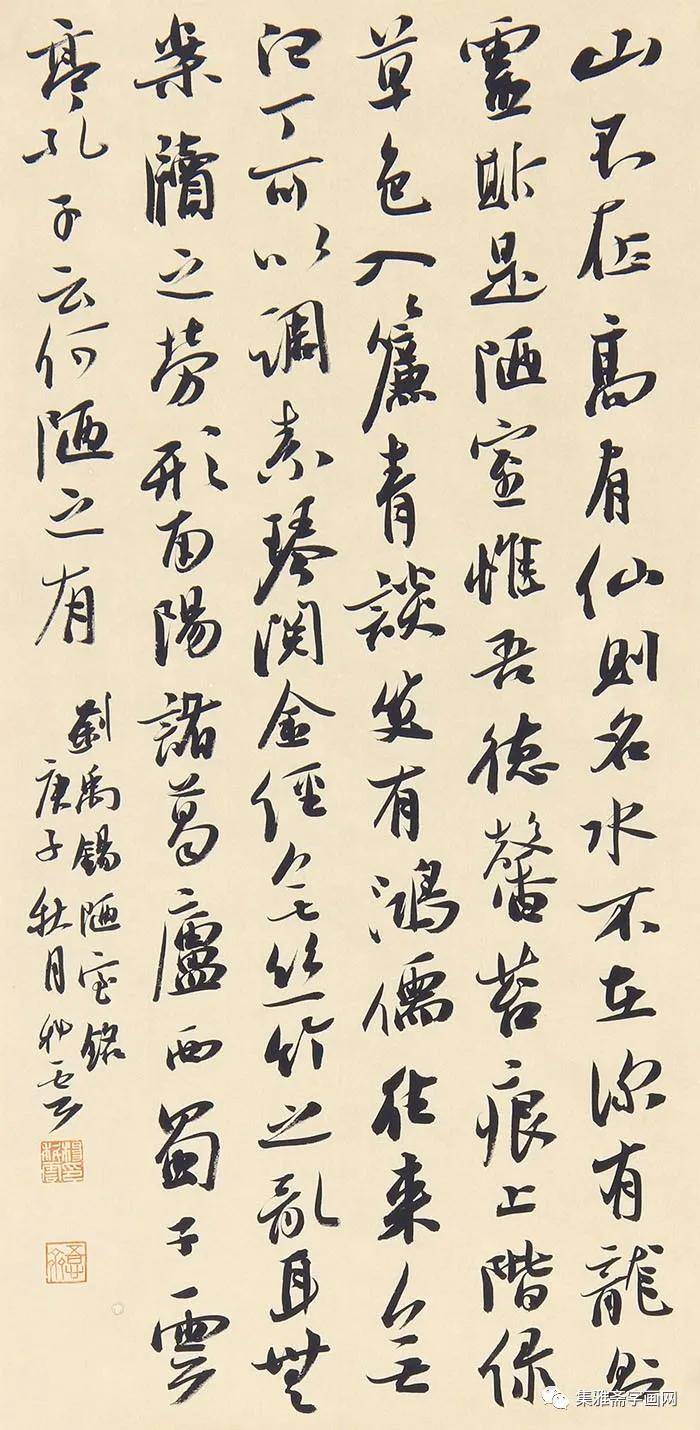 山不在高有仙則名水不在深有龍則
靈斯是陋室惟吾德馨苔痕上階绿
草色入簾青談笑有鴻儒往来無
白丁可以調素琴閱金經無丝竹之亂耳無
案牘之勞形南陽諸葛廬西蜀子雲
亭孔子云何陋之有
劉禹錫陋室銘
庚子秋月
集雅斋字画网